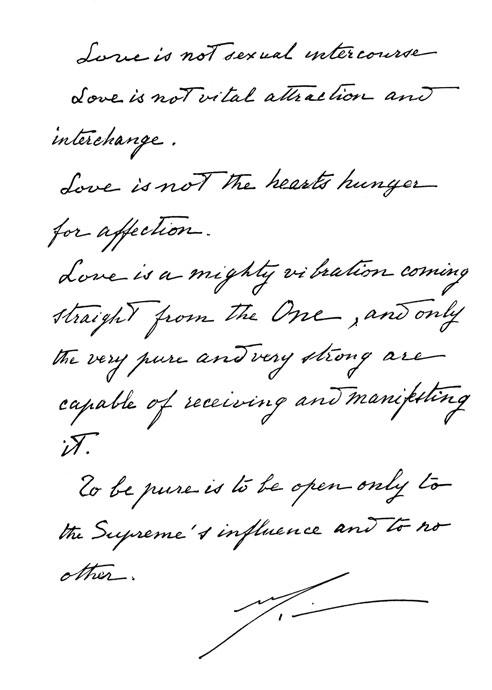 Love is not sexual intercourse
Love is not vital attraction and
interchange.
Love is not the hearts hunger
for affection.
Love is a mighty vibration coming
straight from the One, and only
the very pure and very strong are
capable of receiving and manifesting
it.
To be pure is to be open only to
the Supreme's influence and to no
other.